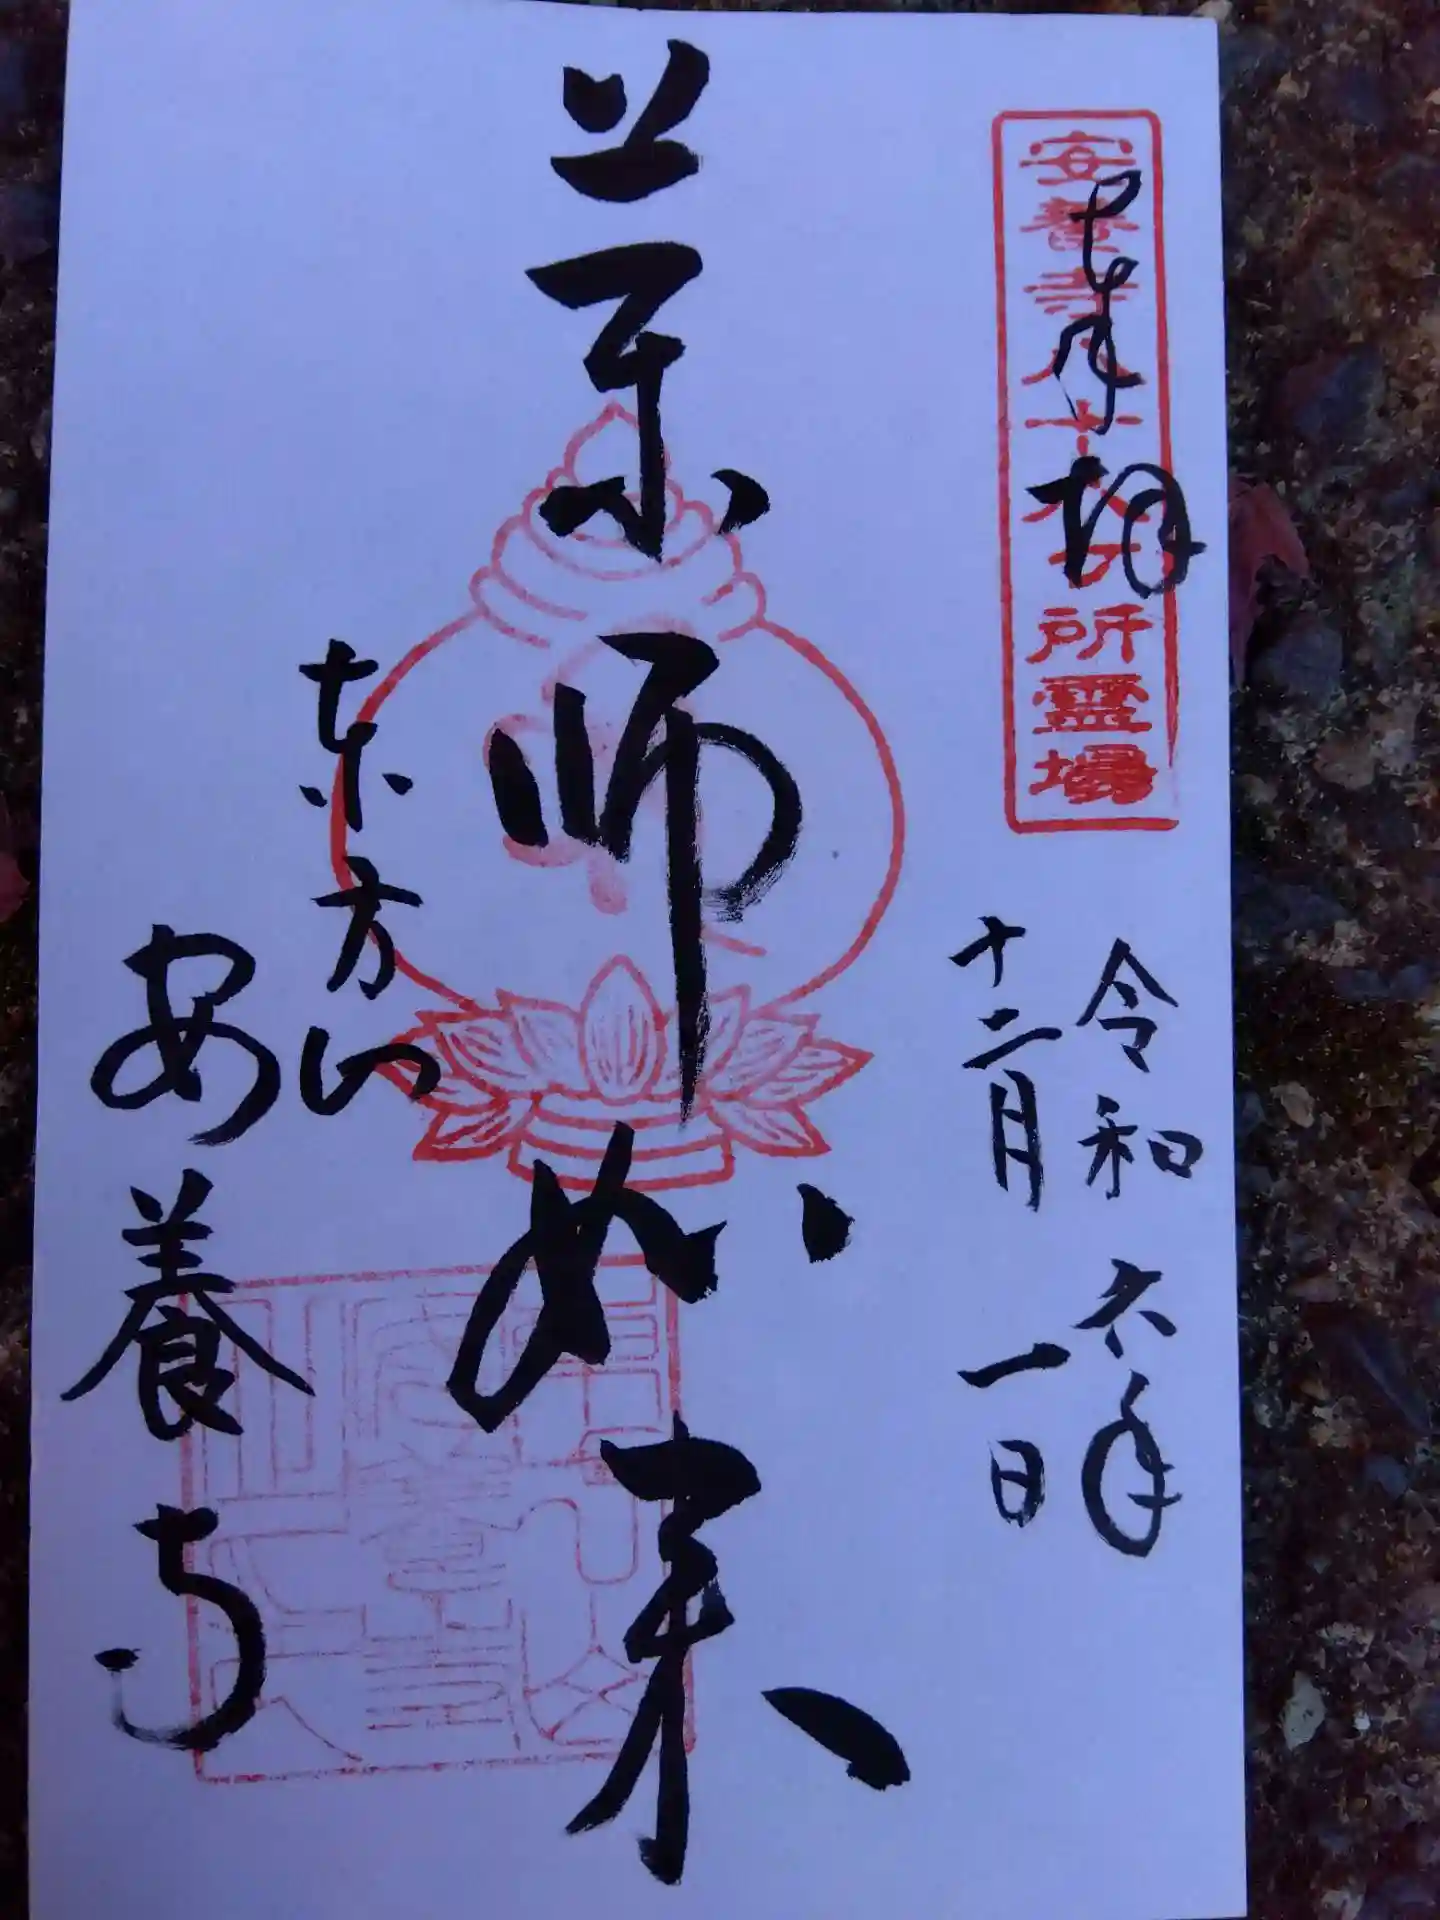 奉拝
安養寺八十八ヶ所霊場
令和六年
十二月一日
薬師如来
東方山
安養寺